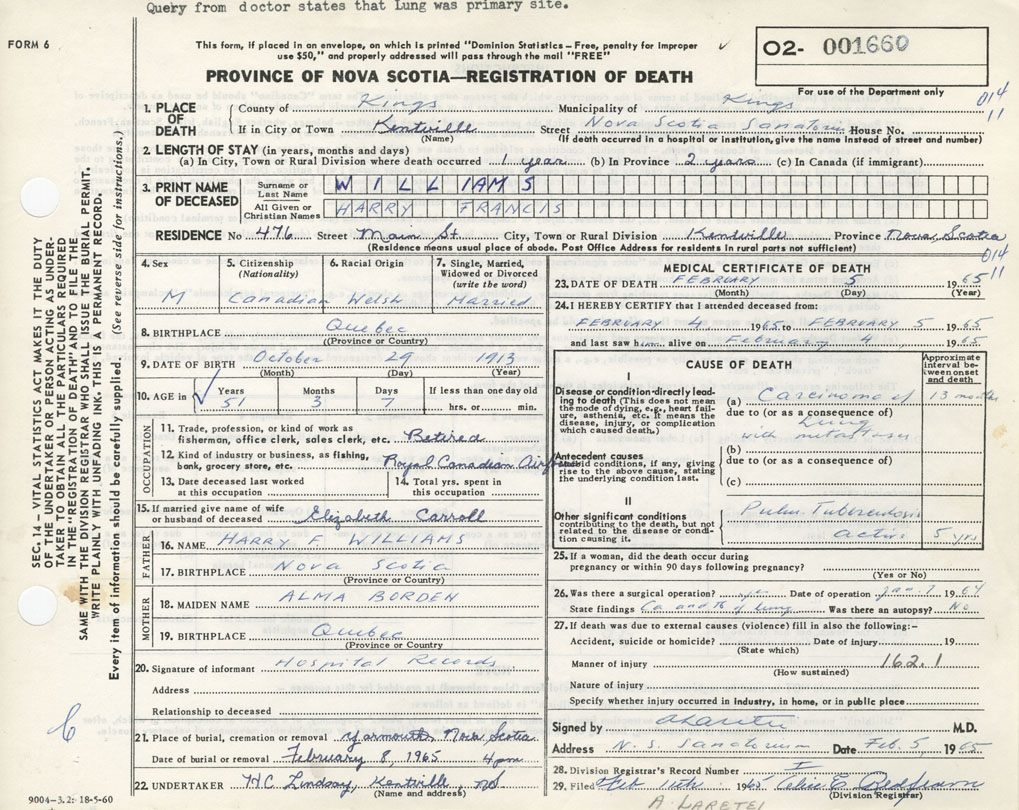 Query from doctor states that Lung was primary site.
FORM 6
This form, if placed in an envelope, on which is printed "Dominion Statistics – Free, penalty for improper
use $50," and properly addressed will pass through the mail "FREE"
O2- 001660
For use of the Department only
PROVINCE OF NOVA SCOTIA—REGISTRATION OF DEATH
014
11
1. PLACE OF DEATH County of Kings Municipality of Kings
If in City or Town Kentville Street Nova Scotia Sanatorium House No.
(Name) (If death occurred in a hospital or institution, give the name instead of street and number)
2. LENGTH OF STAY (in years, months and days)
(a) In City, Town or Rural Division where death occurred 1 year (b) In Province 2 years (c) In Canada (if immigrant)
3. PRINT NAME OF DECEASED
Surname or Last Name WILLIAMS
All Given or Christian Names HARRY FRANCIS
RESIDENCE No 476 Street Main St. City, Town or Rural Division Kentville Province Nova Scotia
(Residence means usual place of abode. Post Office Address for residents in rural parts not sufficient)
014
11
4. Sex M
5. Citizenship (Nationality) Canadian
6. Racial Origin Welsh
7. Single, Married, Widowed or Divorced (write the word) Married
8. BIRTHPLACE Quebec
(Province or Country)
9. DATE OF BIRTH October 29 1913
(Month) (Day) (Year)
10. AGE in Years 51 Months 3 Days 7 If less than one day old hrs. or min.
OCCUPATION
11. Trade, profession, or kind of work as
fisherman, office clerk, sales clerk, etc. Retired
12. Kind of industry or business, as fishing,
bank, grocery store, etc. Royal Canadian Airforce
13. Date deceased last worked
at this occupation
14. Total yrs. spent in
this occupation
15. If married give name of wife
or husband of deceased Elizabeth Carroll
FATHER
16. NAME HARRY F. WILLIAMS
17. BIRTHPLACE Nova Scotia
(Province or Country)
MOTHER
18. MAIDEN NAME ALMA BORDEN
19. BIRTHPLACE Quebec
(Province or Country)
20. Signature of informant Hospital Records
Address
Relationship to deceased
21. Place of burial, cremation or removal Yarmouth Nova Scotia
Date of burial or removal February 8, 1965 4 pm
22. UNDERTAKER H.C. Lindsay, Kentville, NS
(Name and address)
MEDICAL CERTIFICATE OF DEATH
23. DATE OF DEATH FEBRUARY 5 1965
(Month) (Day) (Year)
24. I HEREBY CERTIFY that I attended deceased from:
FEBRUARY 4 1965 to FEBRUARY 5 1965
and last saw him alive on February 4 1965
CAUSE OF DEATH
Approximate interval between onset and death
I
Disease or condition directly leading
to death (This does not mean
the mode of dying, e.g., heart failure,
asthenia, etc. It means the
disease, injury, or complication
which caused death.)
(a) Carcinoma of 13 months
due to (or as a consequence of)
Lung
with metastases
Antecedent causes
Morbid conditions, if any, giving
rise to the above cause, stating
the underlying condition last.
(b)
due to (or as a consequence of)
(c)
II
Other significant conditions
contributing to the death, but not
related to the disease or condition
causing it.
Pulm. Tuberculosis
active 5 yrs
25. If a woman, did the death occur during
pregnancy or within 90 days following pregnancy?
(Yes or No)
26. Was there a surgical operation? yes Date of operation Jan. 7 1964
State findings Ca and Tb of lung Was there an autopsy? No
27. If death was due to external causes (violence) fill in also the following:-
Accident, suicide or homicide? Date of injury 19
(State which)
Manner of injury 162.1
(How sustained)
Nature of injury
Specify whether injury occurred in Industry, in home, or in public place
Signed by M.D.
Address N.S. Sanatorium Date Feb. 5 1965
28. Division Registrar's Record Number
29. Filed Feb 11th 1965
(Division Registrar)
A. LARETEI
SEC. 14 – VITAL STATISTICS ACT MAKES IT THE DUTY
OF THE UNDERTAKER OR PERSON ACTING AS UNDER-
TAKER TO OBTAIN ALL THE PARTICULARS REQUIRED
IN THE "REGISTRATION OF DEATH" AND TO FILE THE
SAME WITH THE DIVISION REGISTRAR WHO SHALL ISSUE THE BURIAL PERMIT.
WRITE PLAINLY WITH UNFADING INK. THIS IS A PERMANENT RECORD.
Every item of information should be carefully supplied. (See reverse side for instructions.)
9004-3.2: 18-5-60